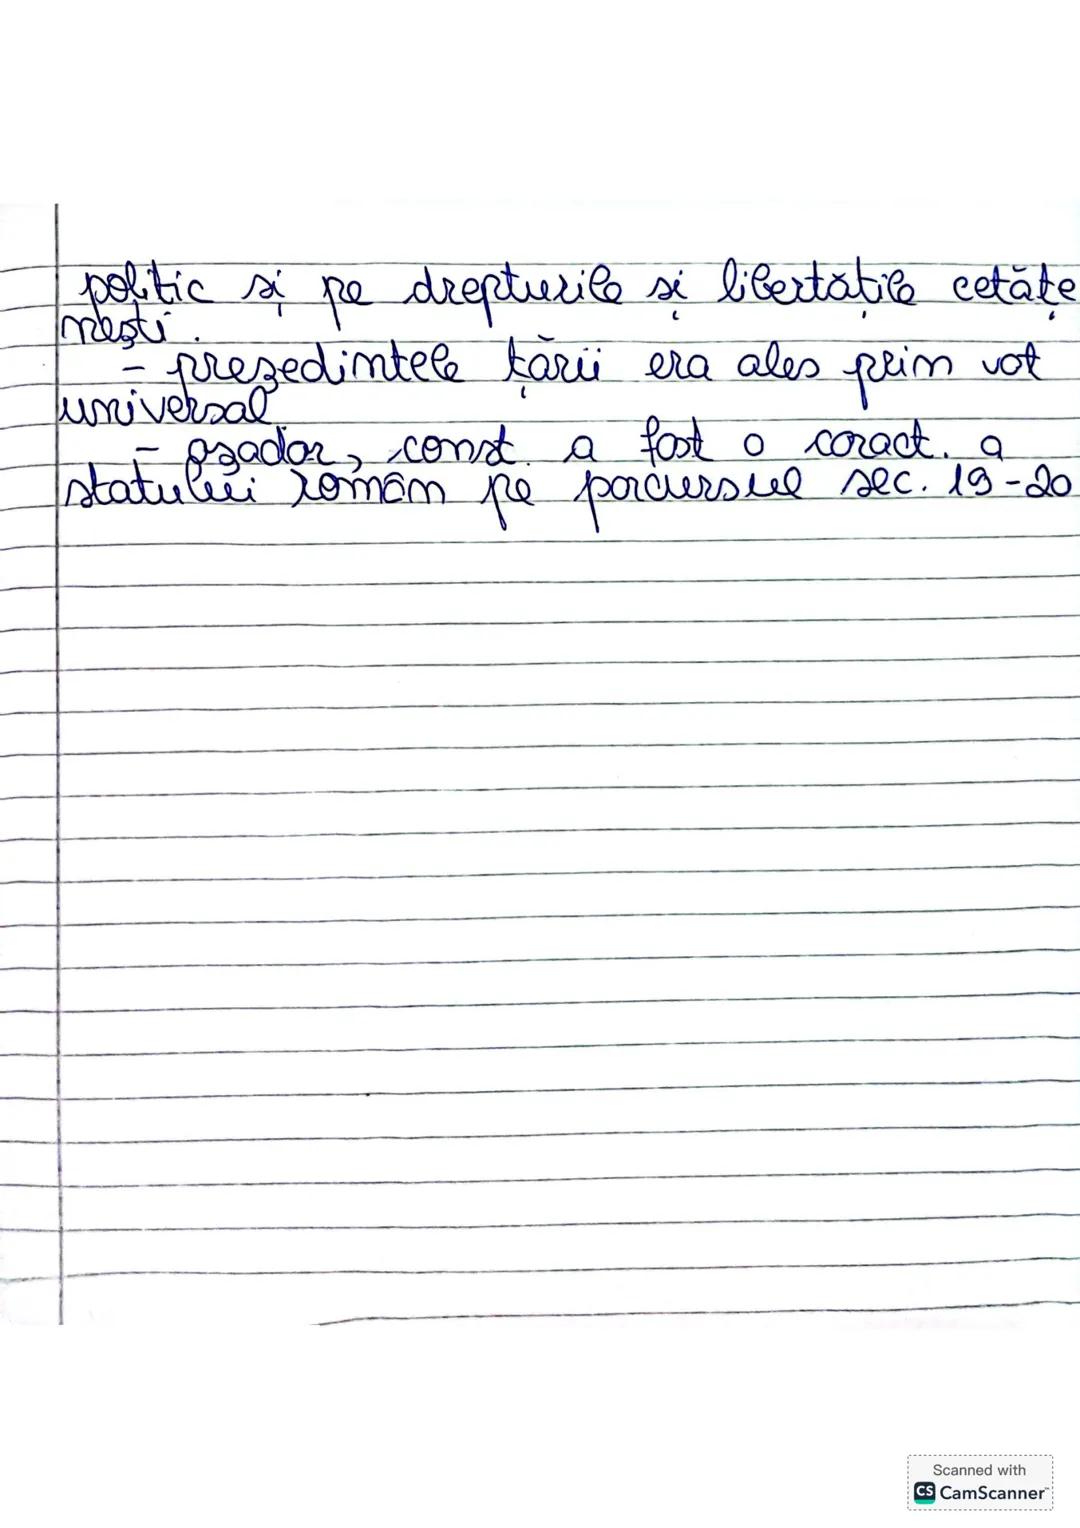 politic și pe drepturile și libertățile cetățe
nești.
- președintele țării era ales prim vot
universal
- așadar, const. a fost o caract. a
statului român pe parcursul sec. 19-20
Scanned with
CS CamScanner